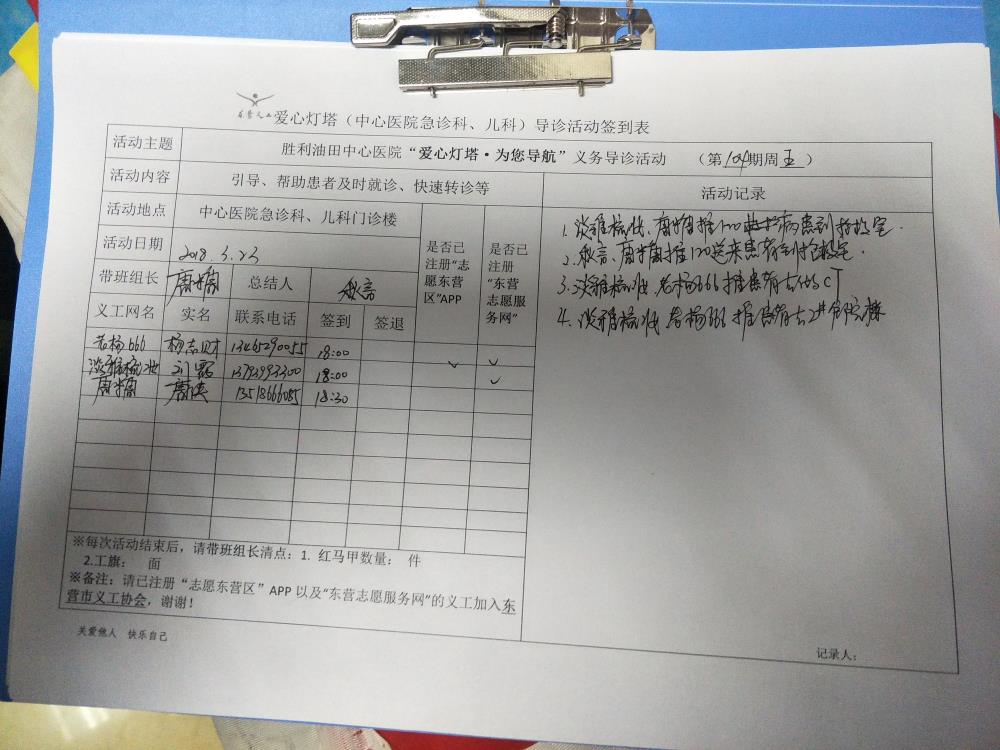 东营义工
爱心灯塔（中心医院急诊科、儿科）导诊活动签到表
活动主题 胜利油田中心医院“爱心灯塔·为您导航”义务导诊活动 （第104期周五）
活动内容 引导、帮助患者及时就诊、快速转诊等 活动记录
活动地点 中心医院急诊科、儿科门诊楼
活动日期 2018.3.23
是否已注册“志愿东营区”APP
是否已注册“东营志愿服务网”
带班组长 总结人 秋言
义工网名 实名 联系电话 签到 签退
老杨666 杨志财 13465290055 18:00
刘霞 13793993300 18:00 ✓ ✓
13518666085 18:30 ✓
1.
2. 秋言、 推120送来患者到抢救室.
3. 老杨666推患者去做CT
4. 老杨666推患者去2#住院楼
※每次活动结束后，请带班组长清点：1. 红马甲数量： 件
2.工旗： 面
※备注：请已注册“志愿东营区”APP以及“东营志愿服务网”的义工加入东
营市义工协会，谢谢！
记录人：
关爱他人 快乐自己